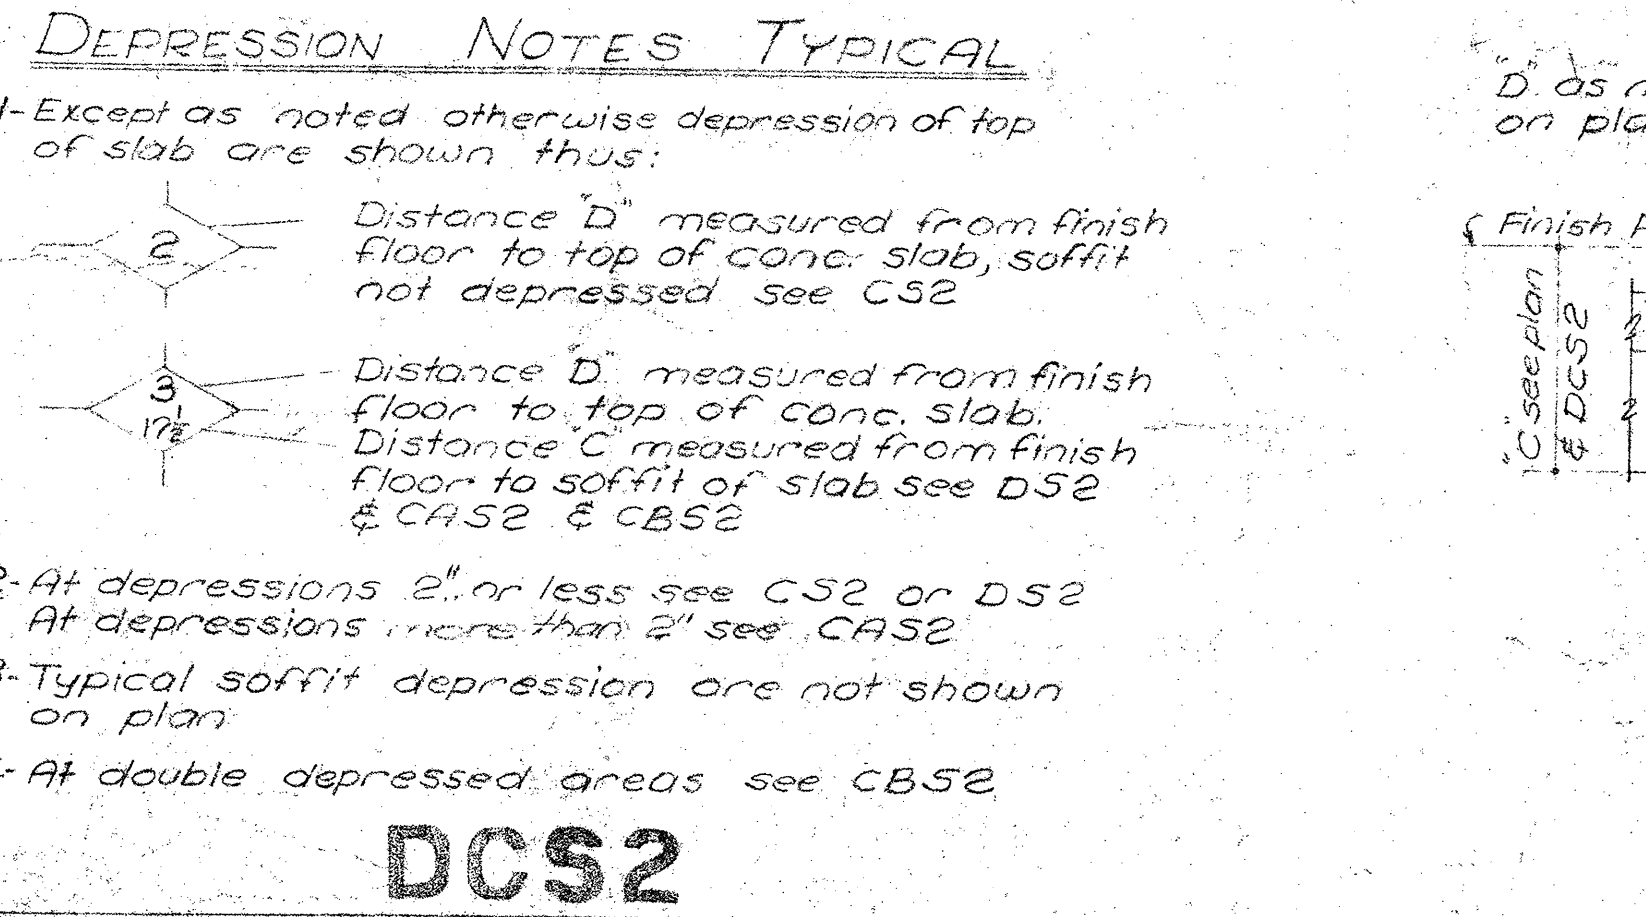 DEPRESSION NOTES TYPICAL
1- Except as noted otherwise depression of top
of slab are shown thus:
2
Distance "D" measured from finish
floor to top of conc. slab, soffit
not depressed see CS2
3
17½
Distance "D" measured from finish
floor to top of conc. slab.
Distance "C" measured from finish
floor to soffit of slab see DS2
& CAS2 & CBS2
2- At depressions 2" or less see CS2 or DS2
At depressions more than 2" see CAS2
3- Typical soffit depression are not shown
on plan
- At double depressed areas see CBS2
DCS2
"D" as
on
Finish
"C" see plan
& DCS2